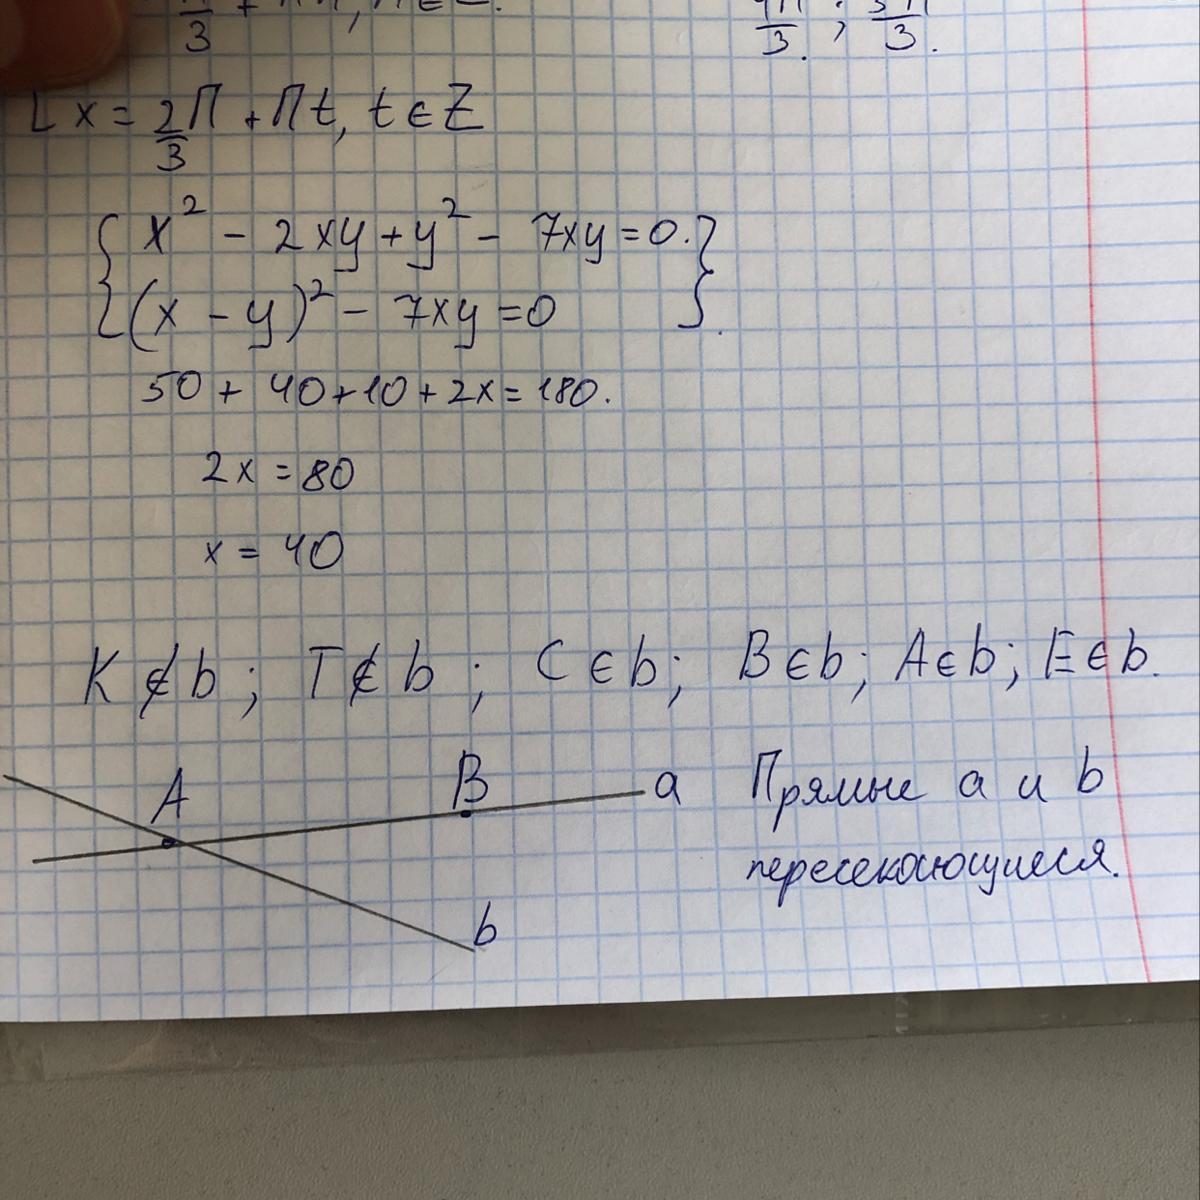 x = 2π/3 + πt, t ∈ Z
{ x² - 2xy + y² - 7xy = 0. }
{ (x - y)² - 7xy = 0 }.
50 + 40 + 10 + 2x = 180.
2x = 80
x = 40
K ∉ b ; T ∉ b ; C ∈ b ; B ∈ b ; A ∈ b ; E ∈ b.
A B a Прямые a и b
пересекающиеся.
b